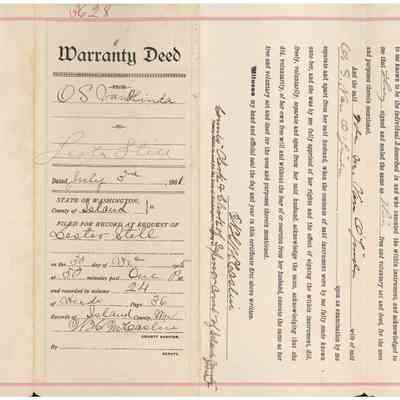 3628
Warranty Deed
FROM
O. S. Van Olinda
TO
Lester Still
Dated July 3rd 1901
STATE OF WASHINGTON,
County of Island
FILED FOR RECORD AT REQUEST OF
Lester Still
on the 30 day
at 30 minutes past One P
and recorded in volume 24
of Deeds Page 36
Records of Island County,
COUNTY AUDITOR.
By
DEPUTY.
to me known to be the individual described in and who executed the within instrument, and acknowledged to
me that They signed and sealed the same as Their free and voluntary act and deed, for the uses
and purposes therein mentioned.
And the said
wife of said
O. S. Van Olinda upon an examination by me
separate and apart from her said husband, when the contents of said instrument were by me fully made known
unto her, and she was by me fully apprised of her rights and the effect of signing the within instrument, did,
freely, voluntarily, separate and apart from her said husband, acknowledge the same, acknowledging that she
did, voluntarily, of her own free will and without the fear of or coercion from her husband, execute the same as her
free and voluntary act and deed for the uses and purposes therein mentioned.
Witness my hand and official seal the day and year in this certificate first above written.
County Clerk & Clerk of Superior Court of Island County